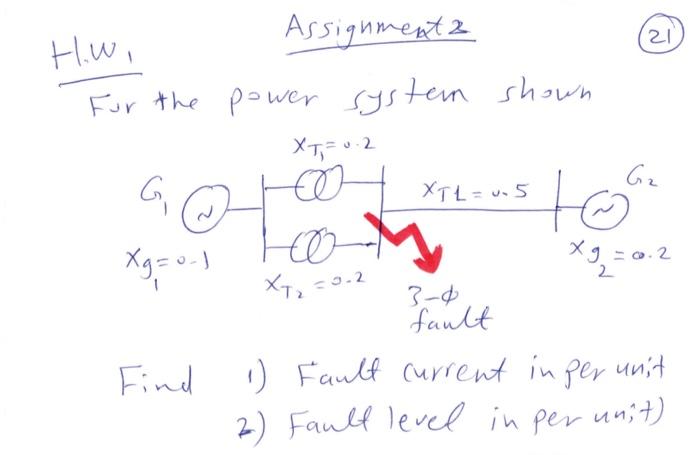 Assignment 2
21
H.W,
For the power system shown
XT1 = 0.2
G1
XTL = 0.5
G2
Xg1 = 0.1
XT2 = 0.2
Xg2 = 0.2
3-Φ
fault
Find 1) Fault current in per unit
2) Fault level in per unit)